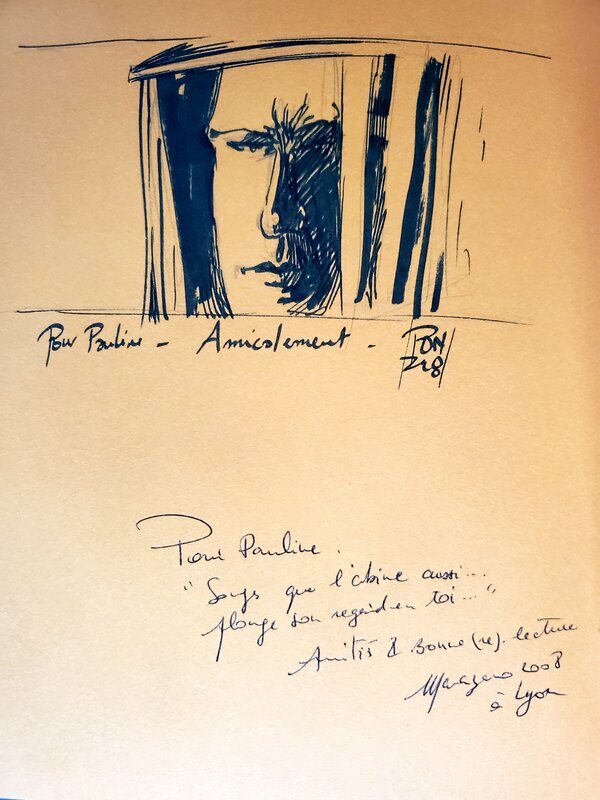 Pour Pauline - Amicalement - PON
Pour Pauline.
"Songs que l'abîme aussi...
plonge son regard en toi..."
Amitiés & Bonne (re)-lecture
Marazano 2008
à Lyon